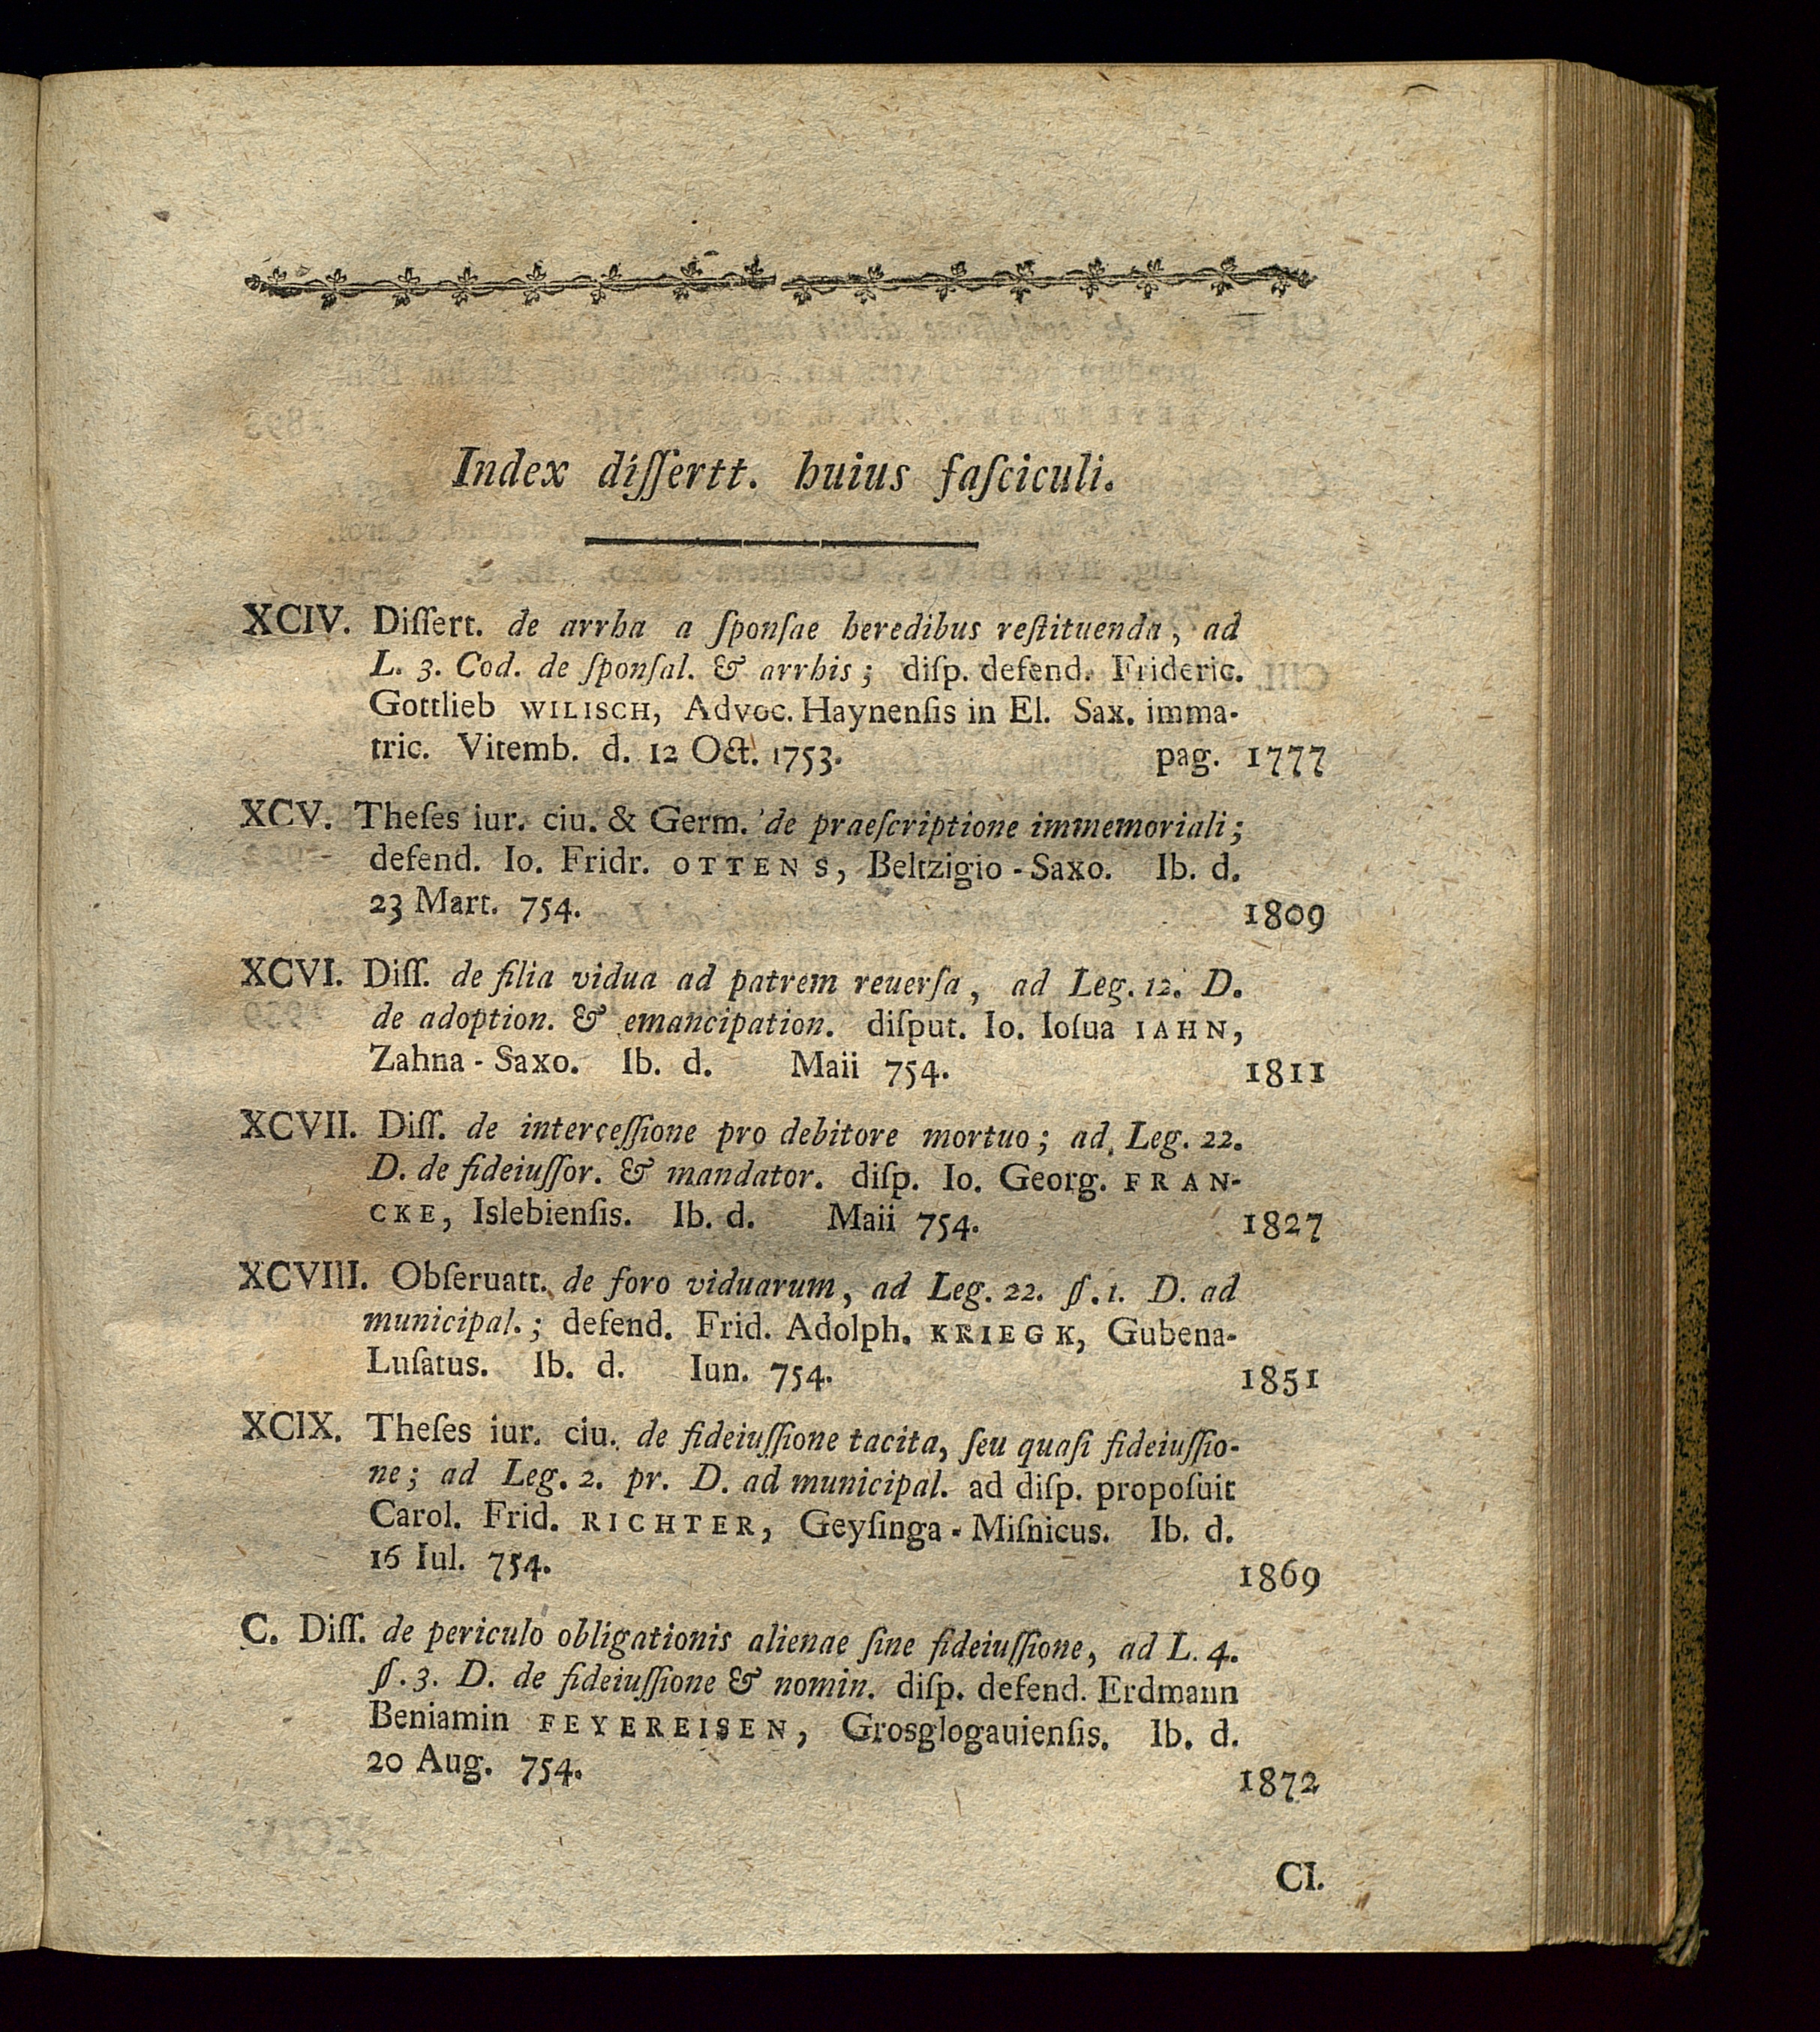 Index diſſertt. huius faſciculi.
XCIV. Diſſert. de arrha a ſponſae heredibus reſtituenda, ad
L. 3. Cod. de ſponſal. & arrhis; diſp. defend. Frideric.
Gottlieb WILISCH, Advoc. Haynenſis in El. Sax. imma-
tric. Vitemb. d. 12 Oct. 1753. pag. 1777
XCV. Theſes iur. ciu. & Germ. de praeſcriptione immemoriali;
defend. Io. Fridr. OTTENS, Beltzigio-Saxo. Ib. d.
23 Mart. 754. 1809
XCVI. Diſſ. de filia vidua ad patrem reuerſa, ad Leg. 12. D.
de adoption. & emancipation. diſput. Io. Ioſua IAHN,
Zahna-Saxo. Ib. d. Maii 754. 1811
XCVII. Diſſ. de interceſſione pro debitore mortuo; ad Leg. 22.
D. de fideiuſſor. & mandator. diſp. Io. Georg. FRAN-
CKE, Islebienſis. Ib. d. Maii 754. 1827
XCVIII. Obſeruatt. de foro viduarum, ad Leg. 22. §. 1. D. ad
municipal.; defend. Frid. Adolph. KRIEGK, Gubena-
Luſatus. Ib. d. Iun. 754. 1851
XCIX. Theſes iur. ciu. de fideiuſſione tacita, ſeu quaſi fideiuſſio-
ne; ad Leg. 2. pr. D. ad municipal. ad diſp. propoſuit
Carol. Frid. RICHTER, Geyſinga-Miſnicus. Ib. d.
16 Iul. 754. 1869
C. Diſſ. de periculo obligationis alienae ſine fideiuſſione, ad L. 4.
§. 3. D. de fideiuſſione & nomin. diſp. defend. Erdmann
Beniamin FEYEREISEN, Grosglogauienſis. Ib. d.
20 Aug. 754. 1872
CI.